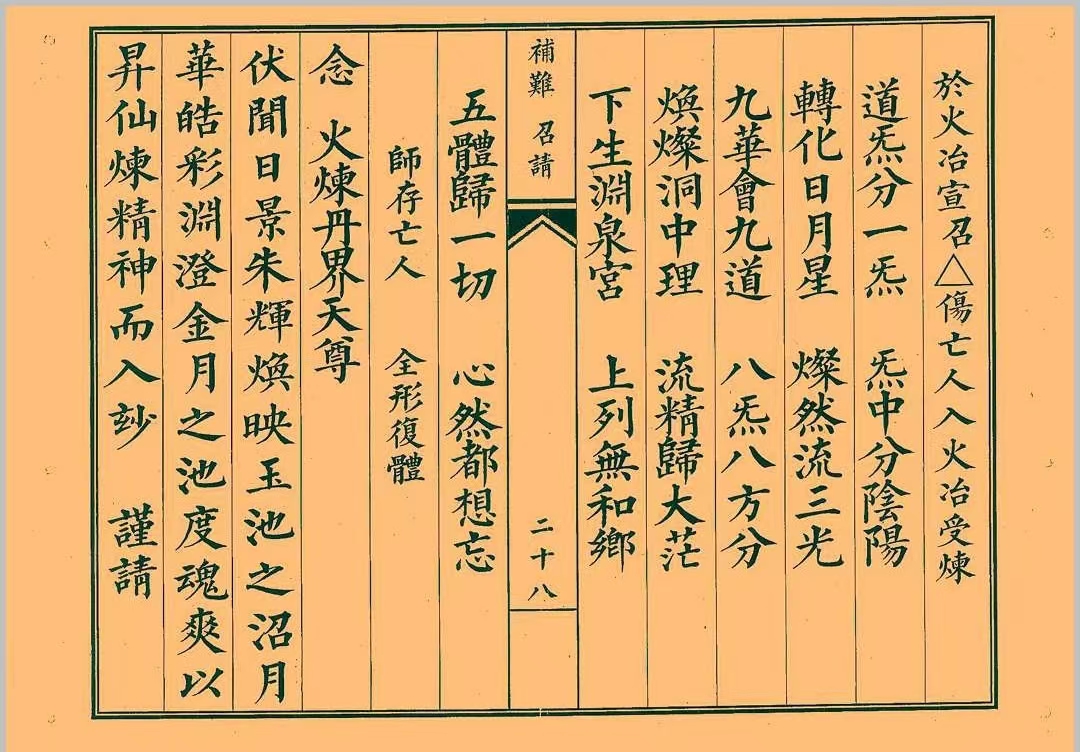 於火冶宣召△傷亡人入火冶受煉
道炁分一炁 炁中分陰陽
轉化日月星 燦然流三光
九華會九道 八炁八方分
煥燦洞中理 流精歸大茫
下生淵泉宮 上列無和鄉
補難 召請 二十八
五體歸一切 心然都想忘
師存亡人 全形復體
念 火煉丹界天尊
伏聞日景朱輝煥映玉池之沼月
華皓彩淵澄金月之池度魂爽以
昇仙煉精神而入玅 謹請